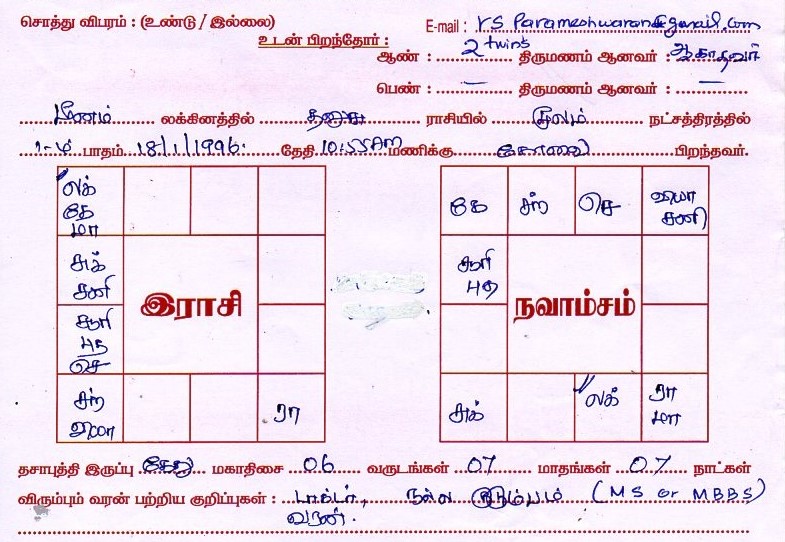 சொத்து விபரம் : (உண்டு / இல்லை) E-mail : rs parameshwaran@gmail.com
உடன் பிறந்தோர் :
ஆண் : 2 twins திருமணம் ஆனவர் : ஆகாதவர்
பெண் : — திருமணம் ஆனவர் : —
மீனம் லக்கினத்தில் தனுசு ராசியில் மூலம் நட்சத்திரத்தில்
1-ம் பாதம் 18/1/1996 தேதி 10:55AM மணிக்கு கோவை பிறந்தவர்.
லக்
கே
மா
சுக்
சனி
சூரி
புத
செ
சந்
வியா
ரா
இராசி
கே சந் செ வியா
சனி
சூரி
புத
நவாம்சம்
சுக் லக் ரா
மா
தசாபுத்தி இருப்பு கேது மகாதிசை 06 வருடங்கள் 07 மாதங்கள் 07 நாட்கள்
விரும்பும் வரன் பற்றிய குறிப்புகள் : டாக்டர், நல்ல குடும்பம் (MS or MBBS)
வரன்.